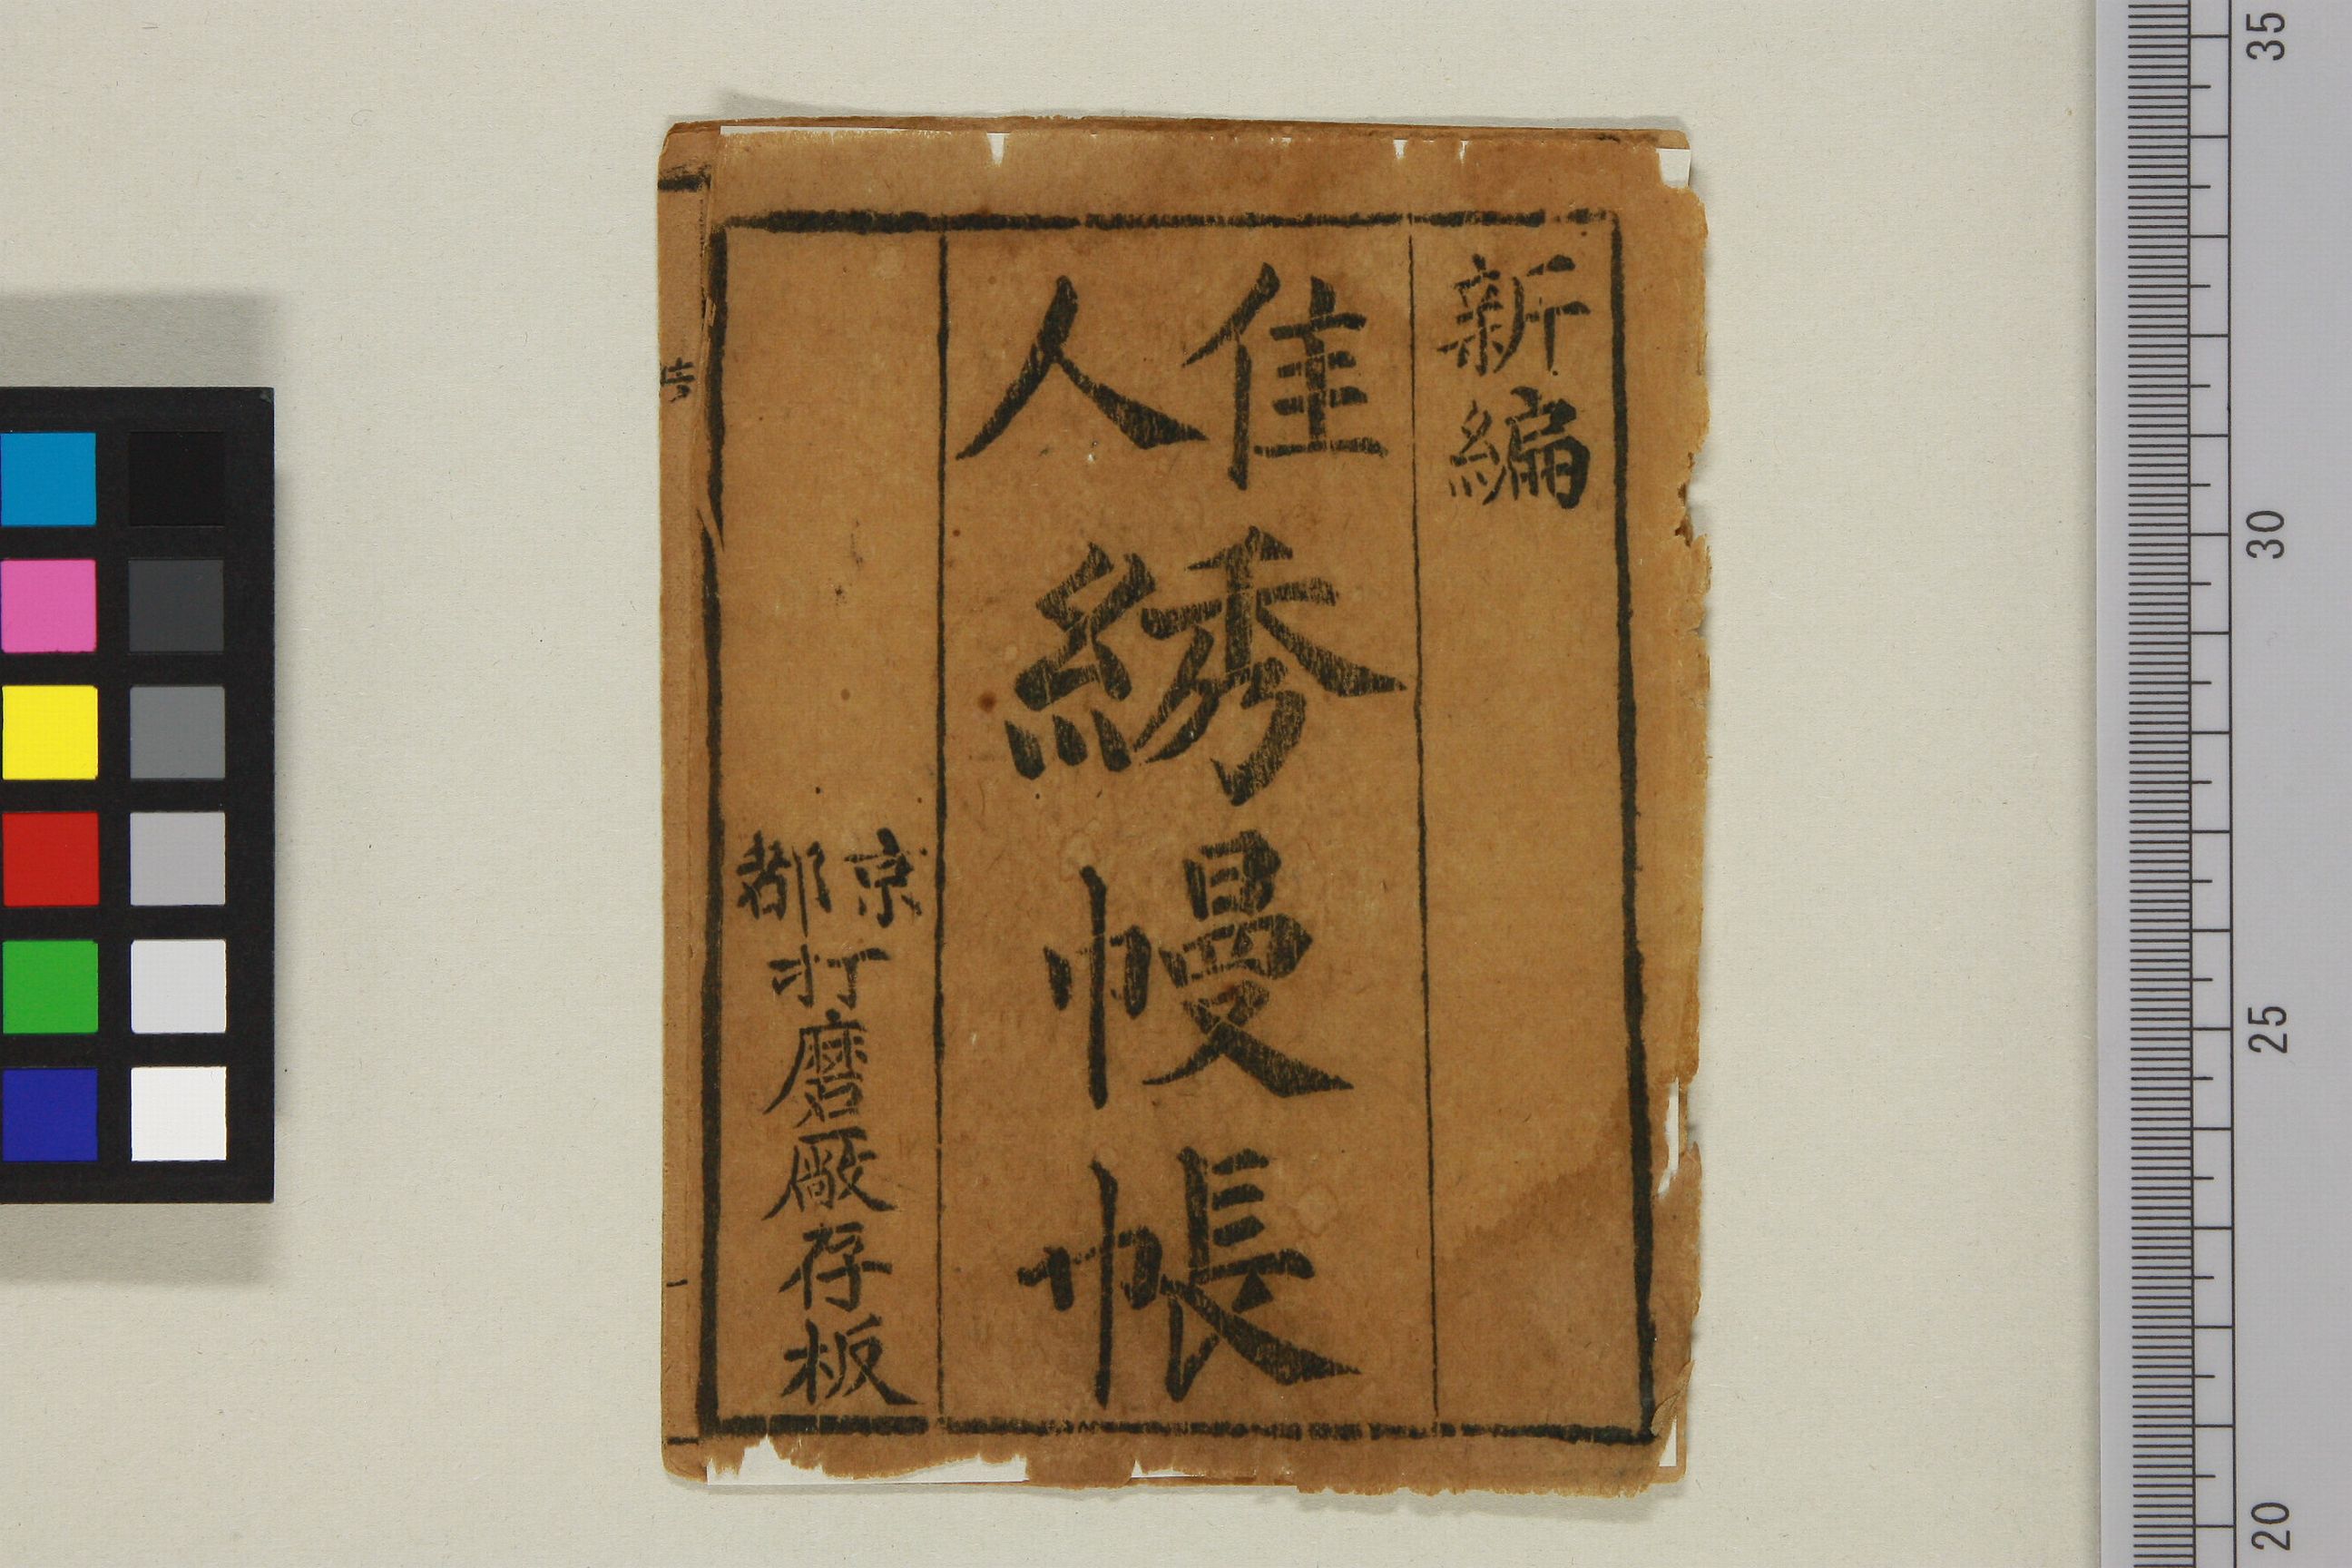 新編
佳人綉幔帳
京都打磨厰存板
35
30
25
20